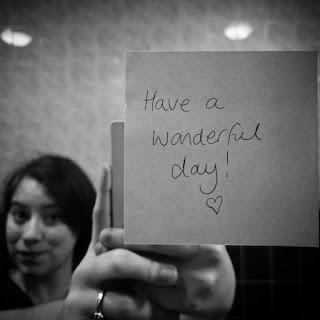 Have a
wonderful
day!
♡